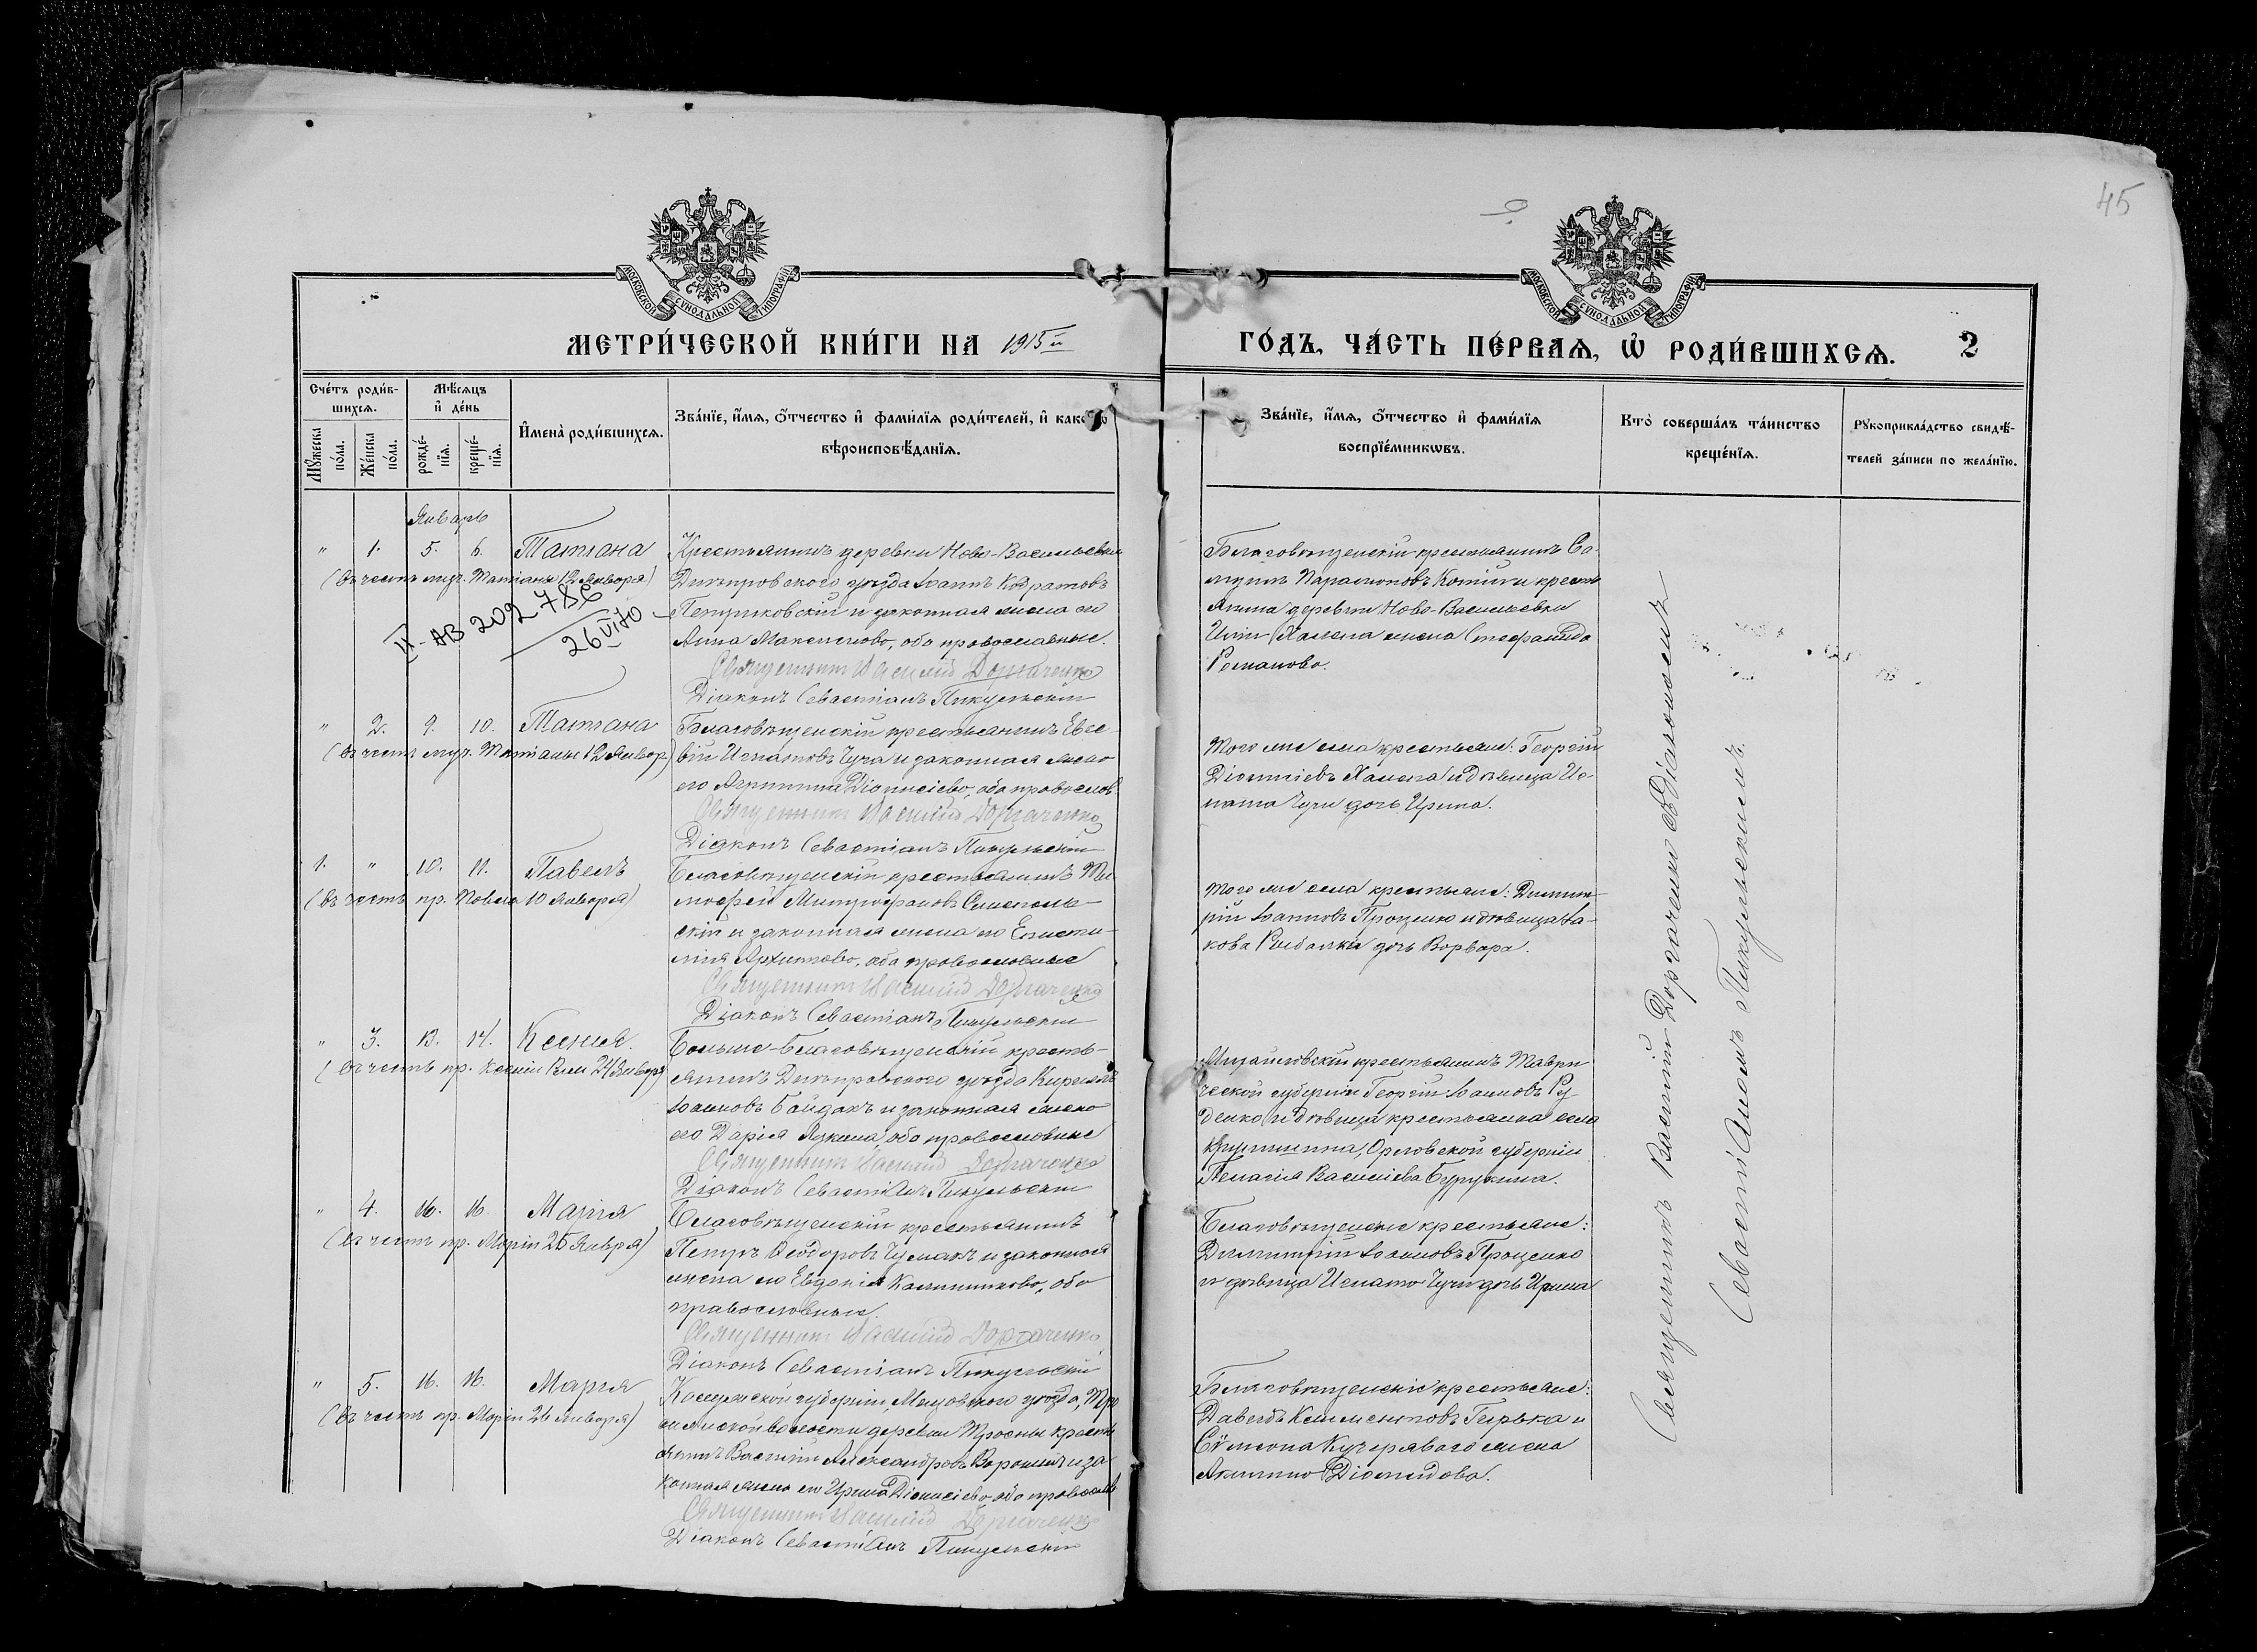 45
МОСКОВСКОЙ СѴНОДАЛЬНОЙ ТИПОГРАФІИ
МОСКОВСКОЙ СѴНОДАЛЬНОЙ ТИПОГРАФІИ
МЕТРИ́ЧЕСКОЙ КНИ́ГИ НА 1915й
ГО́ДЪ, ЧА́СТЬ ПЕ́РВАѦ, Ѡ҆ РОДИ́ВШИХСѦ. 2
Сче́тъ роди́в-
шихсѧ.
Мѣ́сѧцъ
и҆ де́нь
Мꙋ́жеска по́ла.
Же́нска по́ла.
рожде́-
нїѧ.
креще́-
нїѧ.
И҆мена̀ роди́вшихсѧ.
Зва́нїе, и҆́мѧ, ѻ҆́тчество и҆ фами́лїѧ роди́телей, и҆ како́гѡ
вѣроисповѣ́данїѧ.
Зва́нїе, и҆́мѧ, ѻ҆́тчество и҆ фами́лїѧ
воспрїе́мникѡвъ.
Кто̀ соверша́лъ та́инство
креще́нїѧ.
Рꙋкоприкла́дство свидѣ́-
телей за́писи по жела́нїю.
Январь
" 1. 5. 6. Татiана
(въ честь муч. Татiаны 12 Января)
II-АВ 202 786
26 VI 70
Крестьянинъ деревни Ново-Васильевки
Днѣпровскаго уѣзда Іоаннъ Кодратовъ
Петриковскій и законная жена его
Анна Максимова, оба православные.
Священникъ Василій Доргаченко
Діаконъ Севастіанъ Пикульскій
Благовѣщенскій крестьянинъ Са-
муилъ Парамоновъ и кресть
янина деревни Ново-Васильевки
жена Стефанида
Романова.
" 2. 9. 10. Татiана
(въ честь муч. Татiаны 12 Январ.)
Благовѣщенскій крестьянинъ Евсе-
вій Игнатовъ Чуча и законная жена
его Агриппина Діонисіева, оба правослов.
Священникъ Василій Доргаченко
Діаконъ Севастіанъ Пикульскій
Того же села крестьяне: Георгій
Діонисіевъ и дѣвица Иг-
ната Чучи дочь Ирина.
1. " 10. 11. Павелъ
(въ честь пр. Павла 10 Января)
Благовѣщенскій крестьянинъ Ти-
мофей Митрофановъ
скій и законная жена его Еписти-
мія Архипова, оба православные
Священникъ Василій Доргаченко
Діаконъ Севастіанъ Пикульскій
Того же села крестьяне: Димит-
рій Іоанновъ Проценко и дѣвица Іа-
кова Рыбалки дочь Варвара.
" 3. 13. 14. Ксенія.
(въ честь пр. Ксеніи Рим. 24 Января)
Больше-Благовѣщенскій кресть-
янинъ Днѣпровскаго уѣзда Кириллъ
Іоанновъ Байдакъ и законная жена
его Дарія Лукина, оба православные
Священникъ Василій Доргаченко
Діаконъ Севастіанъ Пикульскій
крестьянинъ Таври
ческой губерніи Георгій Іоанновъ Ру-
денко и дѣвица крестьянка села
Орловской губерніи
Пелагія Васильева Бурукина.
" 4. 16. 16. Марія
(въ честь пр. Маріи 26 Января)
Благовѣщенскій крестьянинъ
Петръ Ѳеодоровъ Чумакъ и законная
жена его Евдокія Каллиникова, оба
православные.
Священникъ Василій Доргаченко
Діаконъ Севастіанъ Пикульскій
Благовѣщенскіе крестьяне:
Димитрій Іоанновъ Проценко
и дѣвица Игната Чучи дочь Ирина
" 5. 16. 16. Марія
(въ честь пр. Маріи 26 Января)
Калужской губерніи, Мещовскаго уѣзда,
волости деревни Тросны кресть
янинъ Василій Александровъ Воронинъ и за
конная жена его Ирина Діонисіева, оба православ
Священникъ Василій Доргаченко
Діаконъ Севастіанъ Пикульскій
Благовѣщенскіе крестьяне:
Давидъ Климентовъ Гирька и
Сѵмеона Кучеряваго жена
Акилина Діомидова.
Священникъ Василій Доргаченко съ Діакономъ
Севастіаномъ Пикульскимъ.